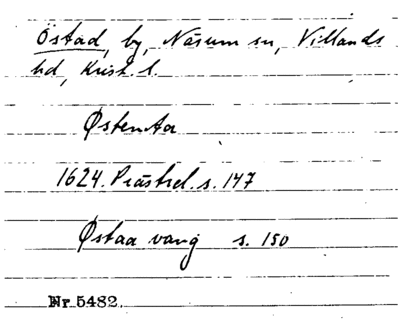 Östad, by, Näsum sn, Villands
hd, Krist. l.
Østenta
1624. Prästrel. s. 147
Østaa vang s. 150
Nr. 5482.